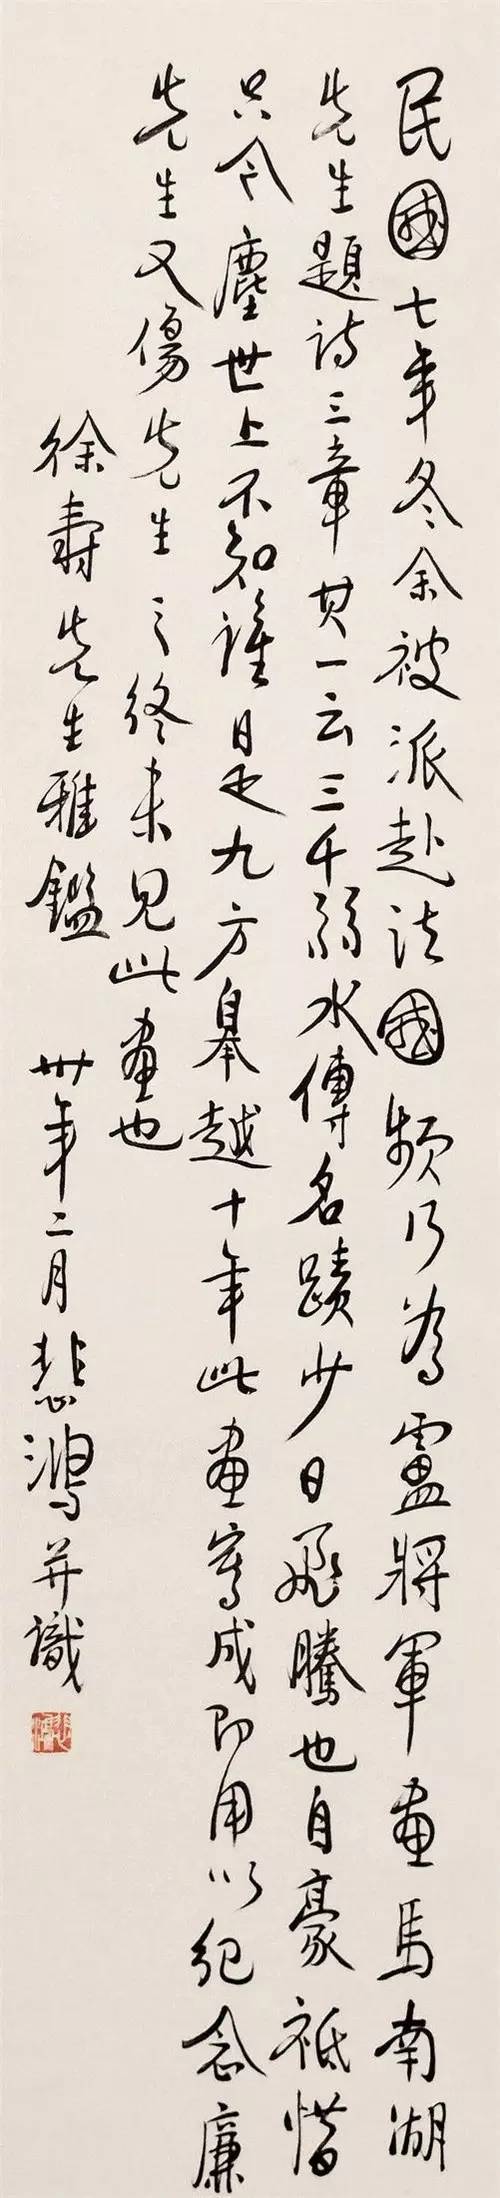 民國七年冬余被派赴法國頻行為盧將軍畫馬南湖
先生題詩三章其一云三千弱水傳名蹟少日飛騰也自豪祗惜
只今塵世上不知誰是九方皋越十年此畫寫成即用以紀念廉
先生又傷先生之終未見此畫也
徐壽先生雅鑑 卅年二月悲鴻并識
悲鴻